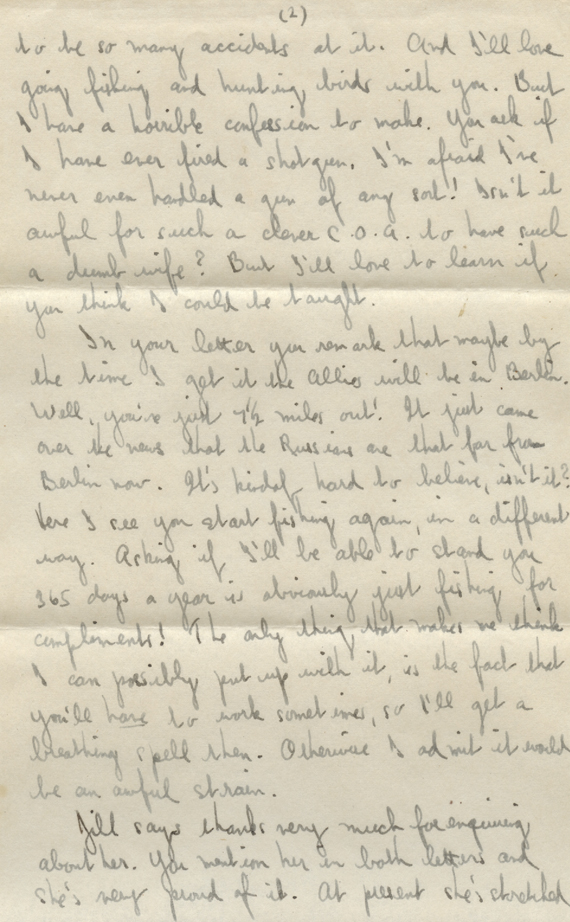 (2)
to be so many accidents at it. And I'll love
going fishing and hunting birds with you. But
I have a horrible confession to make. You ask if
I have ever fired a shotgun. I'm afraid I've
never even handled a gun of any sort! Isn't it
awful for such a clever C.O.A. to have such
a dumb wife? But I'll love to learn if
you think I could be taught.
In your letter you remark that maybe by
the time I get it the Allies will be in Berlin.
Well, you're just 7½ miles out! It just came
over the news that the Russians are that far from
Berlin now. It's kindof hard to believe, isn't it?
Here I see you start fishing again, in a different
way. Asking if I'll be able to stand you
365 days a year is obviously just fishing for
compliments! The only thing that makes me think
I can possibly put up with it, is the fact that
you'll have to work sometimes, so I'll get a
breathing spell then. Otherwise I admit it would
be an awful strain.
Jill says thanks very much for enquiring
about her. You mention her in both letters and
she's very proud of it. At present she's stretched